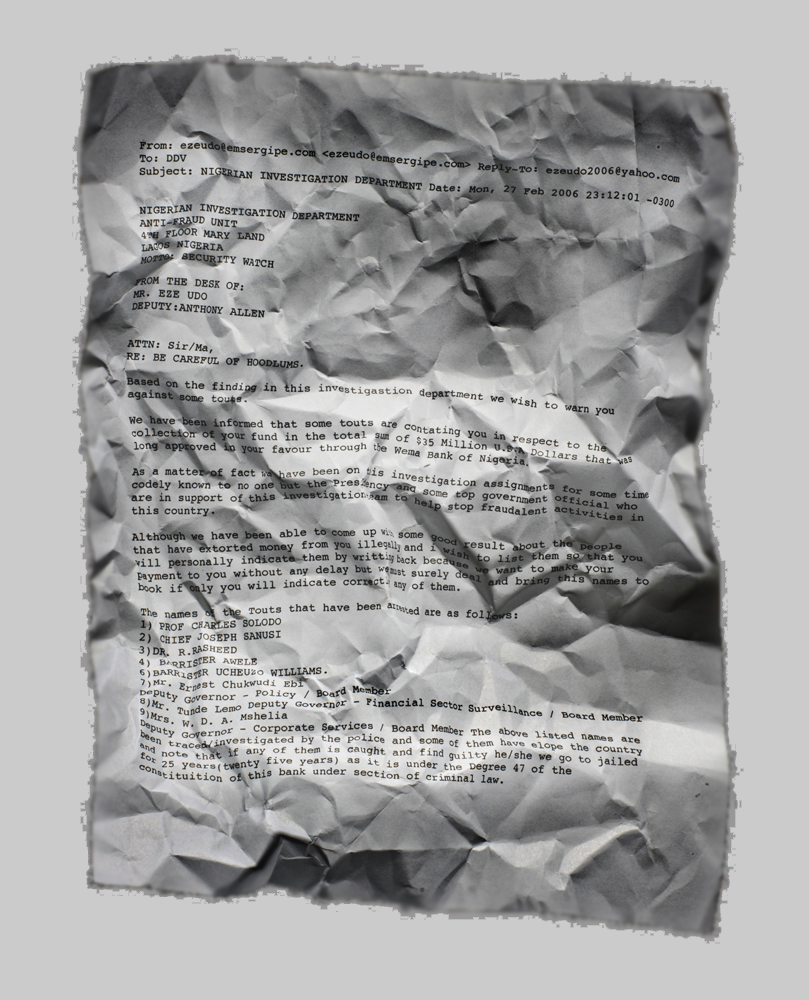 From: ezeudo@emsergipe.com <ezeudo@emsergipe.com> Reply-To: ezeudo2006@yahoo.com
To: DDV
Subject: NIGERIAN INVESTIGATION DEPARTMENT Date: Mon, 27 Feb 2006 23:12:01 -0300
NIGERIAN INVESTIGATION DEPARTMENT
ANTI-FRAUD UNIT
4TH FLOOR MARY LAND
LAGOS NIGERIA
MOTTO: SECURITY WATCH
FROM THE DESK OF:
MR. EZE UDO
DEPUTY:ANTHONY ALLEN
ATTN: Sir/Ma,
RE: BE CAREFUL OF HOODLUMS.
Based on the finding in this investigastion department we wish to warn you
against some touts.
We have been informed that some touts are contating you in respect to the
collection of your fund in the total sum of $35 Million U.S.A Dollars that was
long approved in your favour through the Wema Bank of Nigeria.
As a matter of fact we have been on this investigation assignments for some time
codely known to no one but the Presidency and some top government official who
are in support of this investigation team to help stop fraudalent activities in
this country.
Although we have been able to come up with some good result about the people
that have extorted money from you illegally and i wish to list them so that you
will personally indicate them by writting back because we want to make your
payment to you without any delay but we must surely deal and bring this names to
book if only you will indicate correct any of them.
The names of the Touts that have been arrested are as follows:
1) PROF CHARLES SOLODO
2) CHIEF JOSEPH SANUSI
3)DR. R.RASHEED
4) BARRISTER AWELE
6)BARRISTER UCHEUZO WILLIAMS.
7)Mr. Ernest Chukwudi Ebi
Deputy Governor - Policy / Board Member
8)Mr. Tunde Lemo Deputy Governor - Financial Sector Surveillance / Board Member
9)Mrs. W. D. A. Mshelia
Deputy Governor - Corporate Services / Board Member The above listed names are
been traced/investigated by the police and some of them have elope the country
and note that if any of them is caught and find guilty he/she we go to jailed
for 25 years(twenty five years) as it is under the Degree 47 of the
constituition of this bank under section of criminal law.